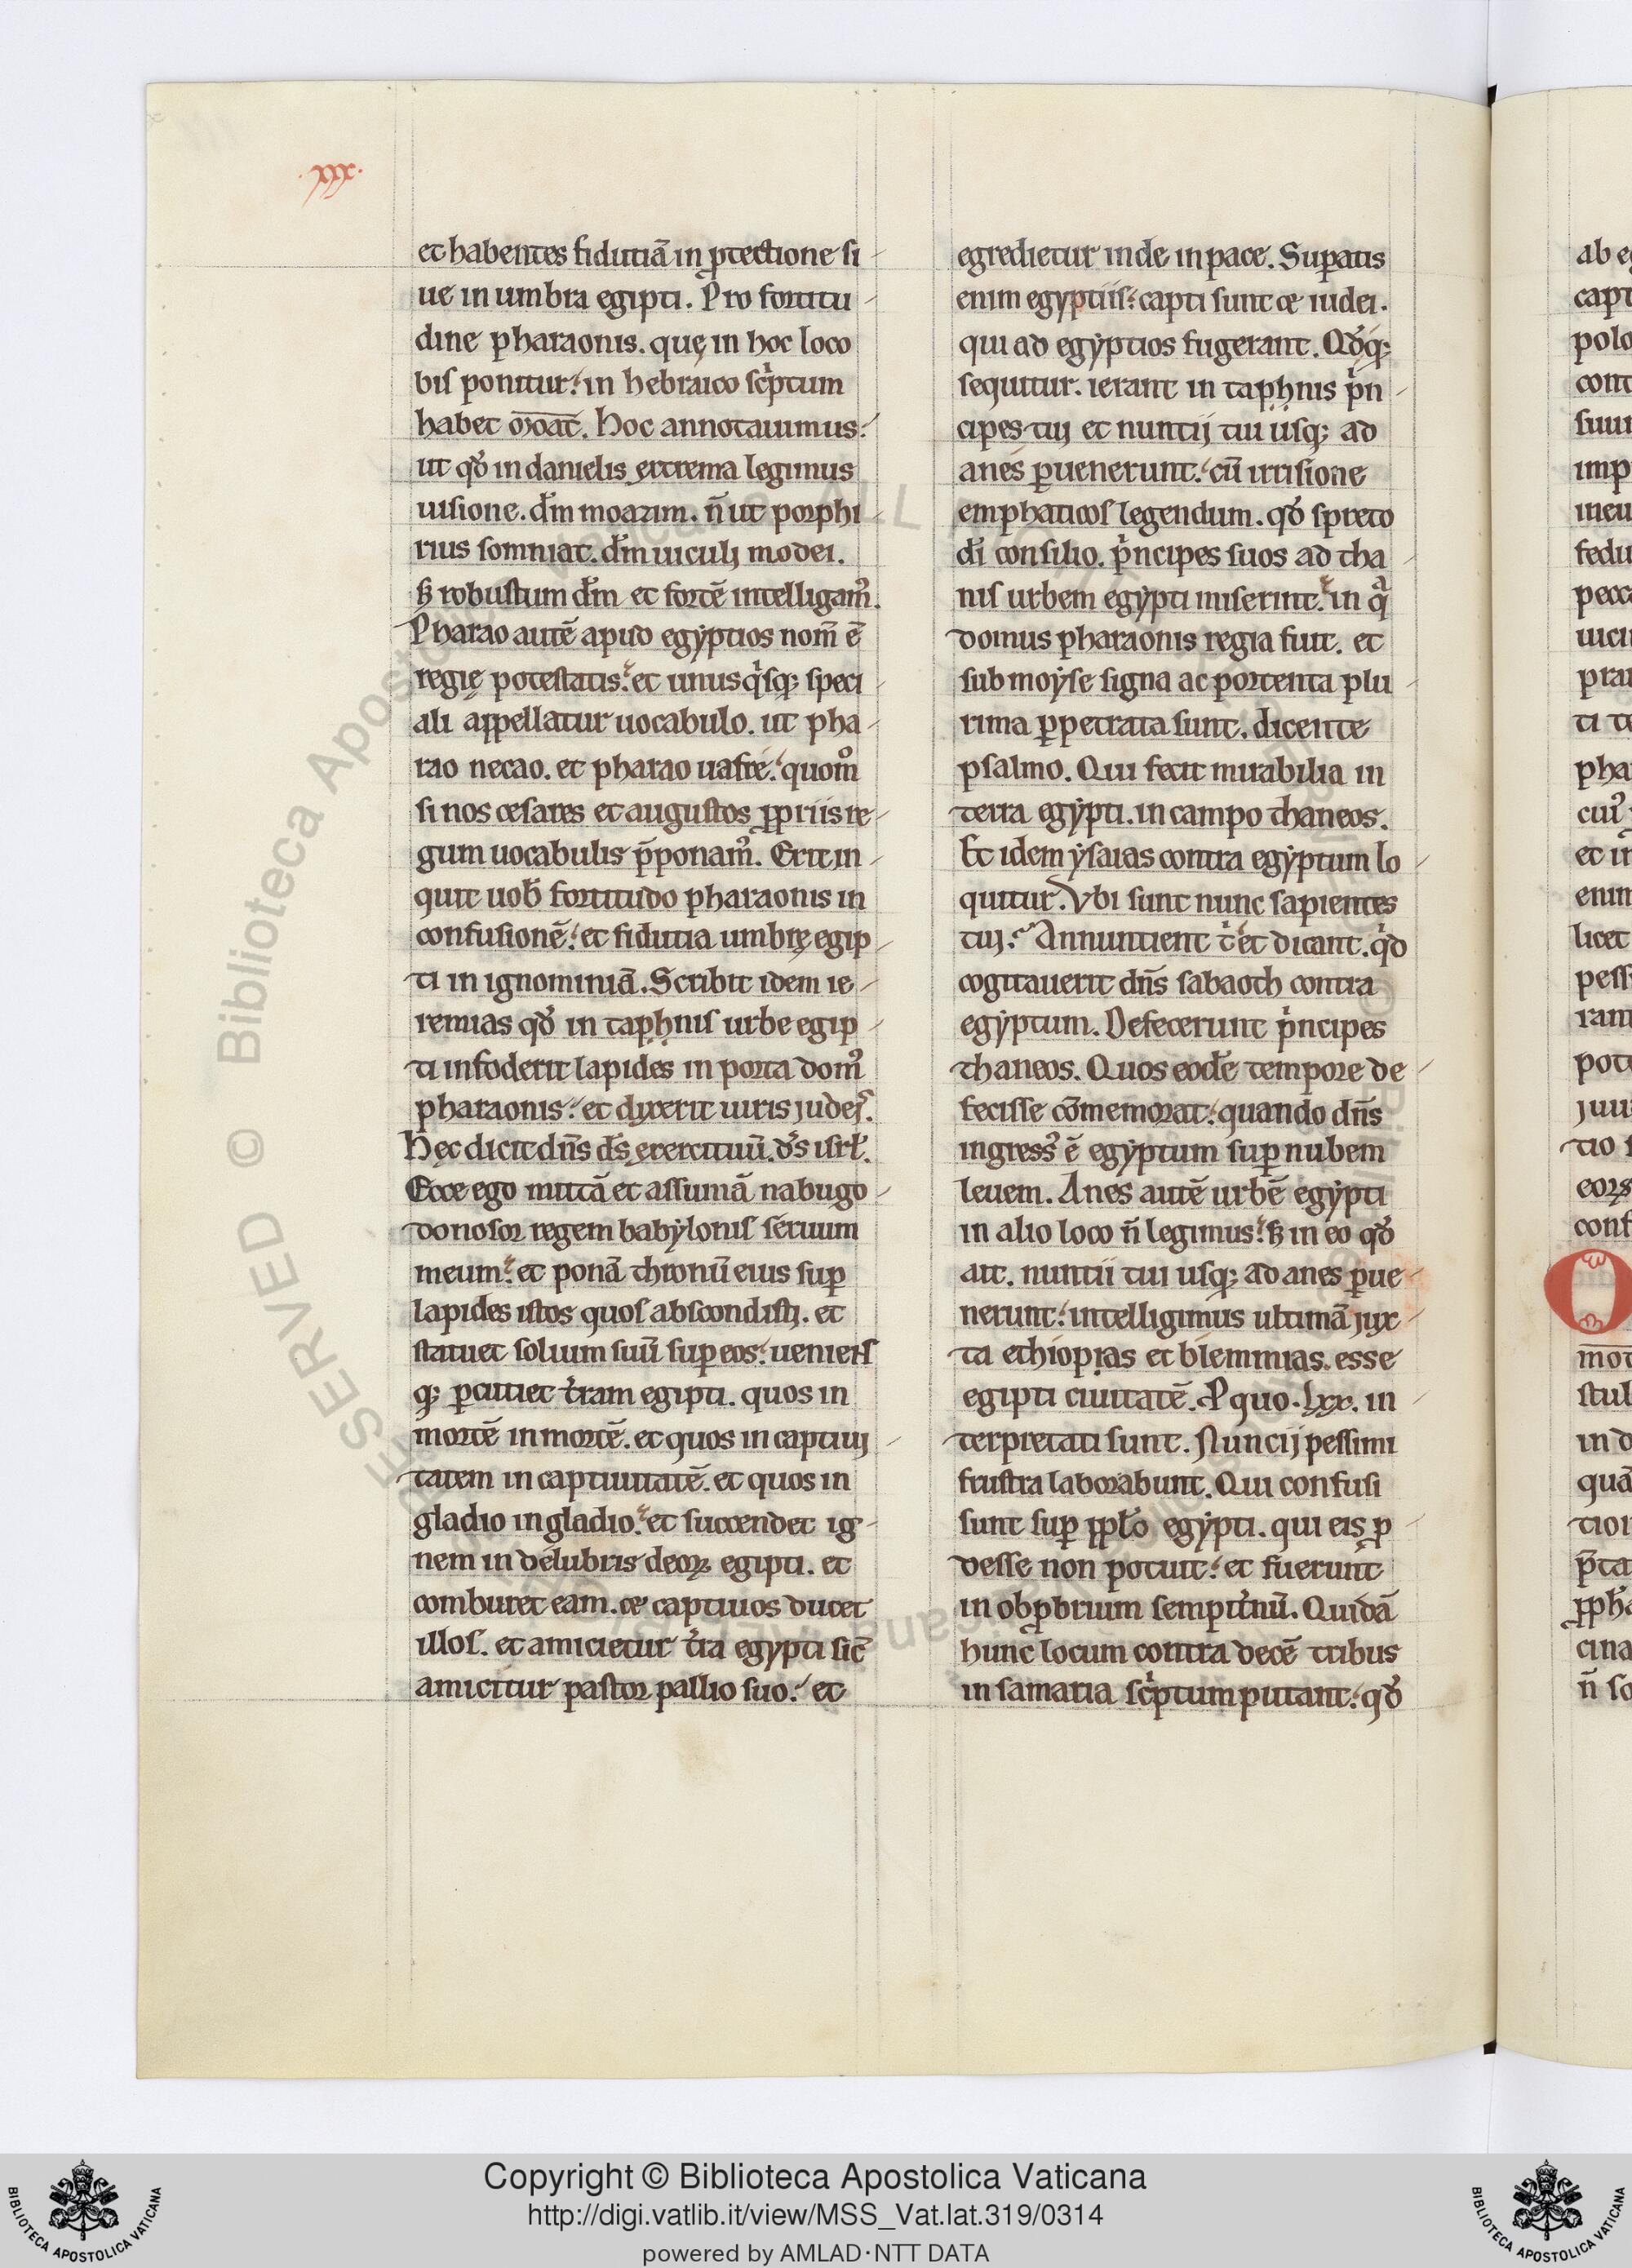 .xxx.
et habentes fidutiā in ꝓtectione si
ue in umbra egipti. Pro fortitu
dine pharaonis. quę in hoc loco
bis ponitur: in hebraico scⁱptum
habet maoz. Hoc annotauimus:
ut qđ in danielis extrema legimus
uisione. dm̄ moazim. n̄ ut porphi
rius somniat. dm̄ uiculi modei.
sꝫ robustum dm̄ et fortē intelligamꝰ.
Pharao autē apud egẏptios nom̄ ē
regię potestatis: et unusqⁱsqꝫ speci
ali appellatur uocabulo. ut pha
rao necao. et pharao uafre: quom̊
si nos cesares et augustos ꝓpriis re
gum uocabulis p̄ponamꝰ. Erit in
quit uob̄ fortitudo pharaonis in
confusionē: et fidutia umbrę egip
ti in ignominiā. Scribit idem ie
remias qđ in taphnis urbe egip
ti infoderit lapides in porta domꝰ
pharaonis: et dixerit uiris judeis.
Hęc dicit dn̄s ds̄ exercituū. ds̄ isrł.
Ecce ego mittā et assumā nabugo
donosor regem babẏlonis seruum
meum: et ponā thronū eius suꝑ
lapides istos quos abscondisti. et
statuet solium suū suꝑ eos: ueniens
qꝫ ꝑcutiet t̄ram egipti. quos in
mortē in mortē. et quos in captiui
tatem in captiuitatē. et quos in
gladio in gladio: et succendet ig
nem in delubris deoꝝ egipti. et
comburet eam. et captiuos ducet
illos. et amicietur t̄ra egypti sic̄
amicitur pastor pallio suo: et
egredietur inde in pace. Suꝑatis
enim egyptiis: capti sunt et iudei.
qui ad egẏptios fugerant. Qđqꝫ
sequitur. ierant in taphnis pⁱn
cipes tui et nuntij tui usqꝫ ad
anes ꝑuenerunt: cū irrisione
emphaticos legendum. qđ spreto
dī consilio. pⁱncipes suos ad tha
nis urbem egẏpti miserint: in qᵃ
domus pharaonis regia fuit. et
sub moẏse signa ac portenta plu
rima ꝑpetrata sunt. dicente
psalmo. Qui fecit mirabilia in
terra egẏpti. in campo thaneos.
Et idem ẏsaias contra egẏptum lo
quitur. Vbi sunt nunc sapientes
tui? Annuntient t̄ et dicant. qⁱd
cogitauerit dn̄s sabaoth contra
egẏptum. Defecerunt pⁱncipes
thaneos. Quos eodē tempore de
fecisse cōmemorat: quando dn̄s
ingressꝰ ē egẏptum suꝑ nubem
leuem. Anes autē urbē egẏpti
in alio loco n̄ legimus: sꝫ in eo qđ
ait. nuntii tui usqꝫ ad anes ꝑue
nerunt: intelligimus ultimā jux
ta ethiopias et blemmias. esse
egipti ciuitatē. P quo. lxx. in
terpretati sunt. Nuncij pessimi
frustra laborabunt. Qui confusi
sunt suꝑ ppło egẏpti. qui eis ꝓ
desse non potuit: et fuerunt
in obꝓbrium sempit̄nū. Quidā
hunc locum contra decē tribus
in samaria scⁱptum putant: qđ
Copyright © Biblioteca Apostolica Vaticana
http://digi.vatlib.it/view/MSS_Vat.lat.319/0314
powered by AMLAD·NTT DATA
BIBLIOTECA APOSTOLICA VATICANA
BIBLIOTECA APOSTOLICA VATICANA